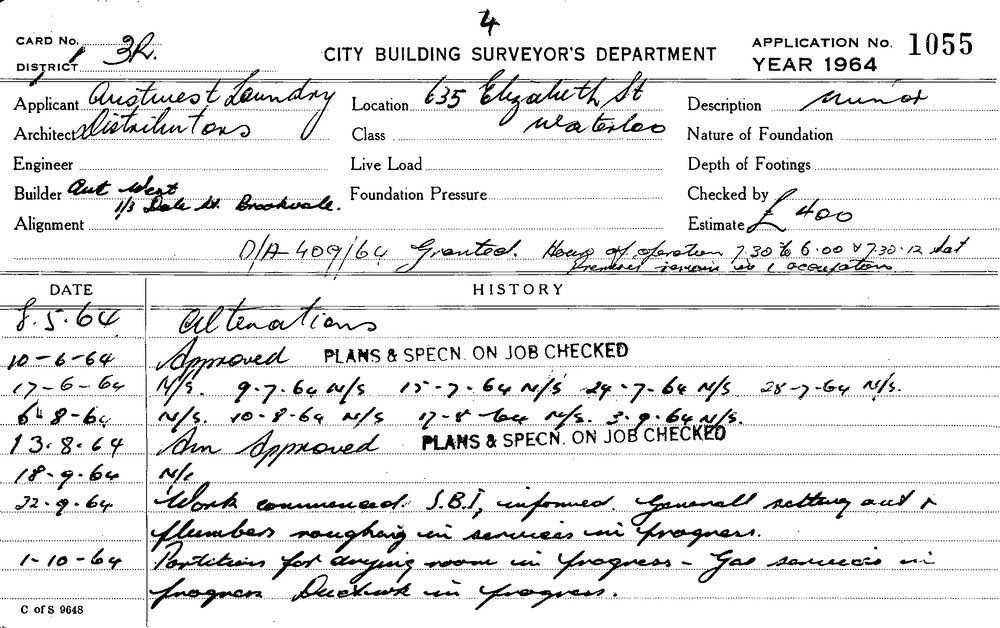 4
CARD No. CITY BUILDING SURVEYOR'S DEPARTMENT APPLICATION No. 1055
DISTRICT 3R. YEAR 1964
Applicant Austwest Laundry Location 635 Elizabeth St Description Minor
Architect Distributors Class Waterloo Nature of Foundation
Engineer Live Load Depth of Footings
Builder Aut West Foundation Pressure Checked by
1/3 Dale St. Brookvale.
Alignment Estimate £ 400
D/A 409/64 Granted. Hours of operation 7.30 to 6.00 & 7.30-12 Sat
premises remain in 1 occupation
DATE HISTORY
8.5.64 Alterations
10-6-64 Approved PLANS & SPECN. ON JOB CHECKED
17-6-64 N/S. 9.7.64 N/S 15-7.64 N/S 24.7.64 N/S 28-7.64 N/S.
8-64 N/S. 10-8-64 N/S 17-8-64 N/S. 3.9.64 N/S.
13.8.64 Am Approved PLANS & SPECN. ON JOB CHECKED
18.9.64 N/c
22.9.64 Work commenced. S.B.I, informed. Generall setting out &
plumbers roughing in services in progress.
1-10-64 Partitions for drying room in progress - Gas services in
progress Ductwk in progress.
C of S 9648